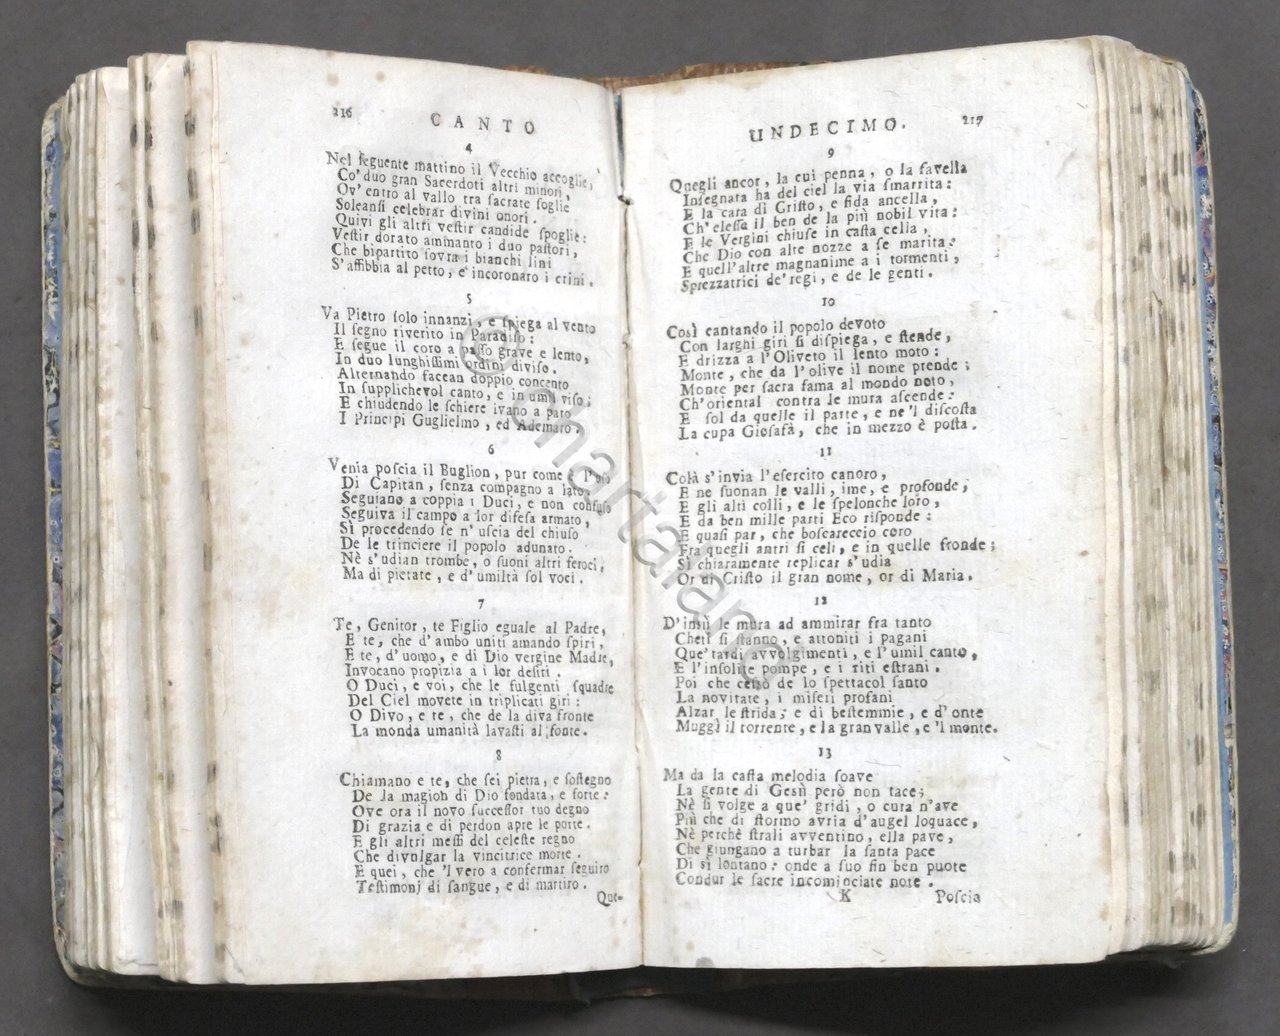 216 CANTO
4
Nel ſeguente mattino il Vecchio accoglie,
Co' duo gran Sacerdoti altri minori,
Ov' entro al vallo tra ſacrate ſoglie
Soleanſi celebrar divini onori.
Quivi gli altri veſtir candide ſpoglie:
Veſtir dorato ammanto i duo paſtori,
Che bipartito ſovra i bianchi lini
S'affibbia al petto, e' incoronaro i crini.
5
Va Pietro ſolo innanzi, e ſpiega al vento
Il ſegno riverito in Paradiſo:
E ſegue il coro a paſſo grave e lento,
In duo lunghiſſimi ordini diviſo.
Alternando facean doppio concento
In ſupplichevol canto, e in umil viſo;
E chiudendo le ſchiere ivano a paro
I Principi Guglielmo, ed Ademaro.
6
Venia poſcia il Buglion, pur come è l'uſo
Di Capitan, ſenza compagno a lato,
Seguiano a coppia i Duci, e non confuſo
Seguiva il campo a lor difeſa armato,
Sì procedendo ſe n' uſcia del chiuſo
De le trinciere il popolo adunato.
Nè s'udian trombe, o ſuoni altri feroci,
Ma di pietate, e d'umiltà ſol voci.
7
Te, Genitor, te Figlio eguale al Padre,
E te, che d'ambo uniti amando ſpiri,
E te, d'uomo, e di Dio vergine Madre,
Invocano propizia a i lor deſiri.
O Duci, e voi, che le fulgenti ſquadre
Del Ciel movete in triplicati giri:
O Divo, e te, che de la diva fronte
La monda umanità lavaſti al fonte.
8
Chiamano e te, che ſei pietra, e ſoſtegno
De la magion di Dio fondata, e forte:
Ove ora il novo ſucceſſor tuo degno
Di grazia e di perdon apre le porte.
E gli altri meſſi del celeſte regno
Che divulgar la vincitrice morte.
E quei, che 'l vero a confermar ſeguiro
Teſtimonj di ſangue, e di martiro.
Que-
UNDECIMO. 217
9
Quegli ancor, la cui penna, o la favella
Inſegnata ha del ciel la via ſmarrita:
E la cara di Criſto, e fida ancella,
Ch'eleſſe il ben de la più nobil vita:
E le Vergini chiuſe in caſta cella,
Che Dio con alte nozze a ſe marita:
E quell'altre magnanime a i tormenti,
Sprezzatrici de' regi, e de le genti.
10
Così cantando il popolo devoto
Con larghi giri ſi diſpiega, e ſtende,
E drizza a l'Oliveto il lento moto:
Monte, che da l'olive il nome prende;
Monte per ſacra fama al mondo noto,
Ch'oriental contra le mura aſcende:
E ſol da quelle il parte, e ne 'l diſcoſta
La cupa Gioſafà, che in mezzo è poſta.
11
Colà s'invia l'eſercito canoro,
E ne ſuonan le valli, ime, e profonde,
E gli alti colli, e le ſpelonche loro,
E da ben mille parti Eco riſponde:
E quaſi par, che boſcareccio coro
Fra quegli antri ſi celi, e in quelle fronde;
Sì chiaramente replicar s'udia
Or di Criſto il gran nome, or di Maria.
12
D'insù le mura ad ammirar fra tanto
Cheti ſi ſtanno, e attoniti i pagani
Que' tardi avvolgimenti, e l'umil canto,
E l'inſolite pompe, e i riti eſtrani.
Poi che ceſsò de lo ſpettacol ſanto
La novitate, i miſeri profani
Alzar le ſtrida; e di beſtemmie, e d'onte
Muggì il torrente, e la gran valle, e 'l monte.
13
Ma da la caſta melodia ſoave
La gente di Gesù però non tace;
Nè ſi volge a que' gridi, o cura n'ave
Più che di ſtormo avria d'augel loquace,
Nè perchè ſtrali avventino, ella pave,
Che giungano a turbar la ſanta pace
Di sì lontano: onde a ſuo fin ben puote
Condur le ſacre incominciate note.
K Poſcia
© chartaland